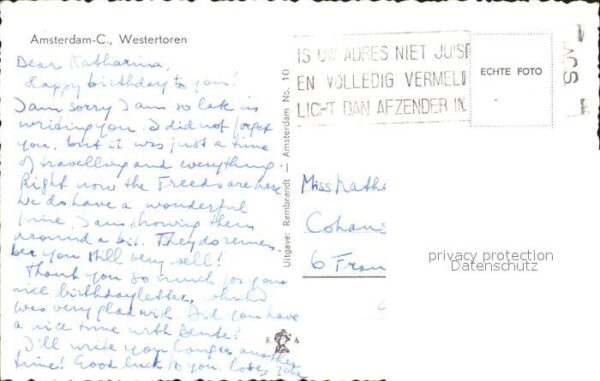 Amsterdam-C., Westertoren
Dear Katharina,
Happy birthday to you!
I am sorry I am so late in
writing you. I did not forget
you, but it was just a time
of travelling and everything.
Right now the Freeds are here
We do have a wonderful
time. I am showing them
around a bit. They do remem-
ber you still very well!
Thank you so much for your
nice birthdayletter, which I
was very glad with. Did you have
a nice time with
I'll write you longer another
time! Good luck to you. Love,
Uitgave: Rembrandt — Amsterdam No. 10
R A
IS UW ADRES NIET JUIST
EN VOLLEDIG VERMELD
LICHT DAN AFZENDER IN
ECHTE FOTO
Miss Kathe
Cohans
6 Fran
privacy protection
Datenschutz